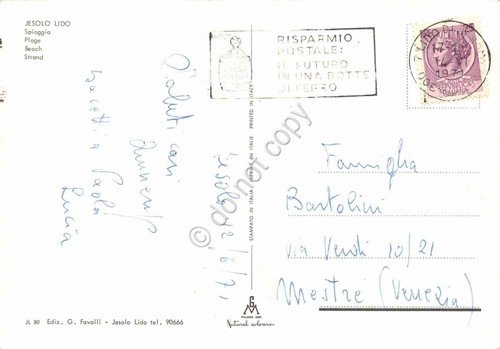 JESOLO LIDO
Spiaggia
Plage
Beach
Strand
RISPARMIO
POSTALE:
IL FUTURO
IN UNA BOTTE
DI FERRO
25
Saluti cari
Jesolo 12/6/71
Paola
Lucia
STAMPATO IN ITALIA - IMPRIMÉ EN ITALIE - PRINTED IN ITALY
do not copy
Famiglia
Bartolini
Via Verdi 10/21
Mestre (Venezia)
JL 80 Ediz. G. Favalli - Jesolo Lido tel. 90666
Natural colorcrom